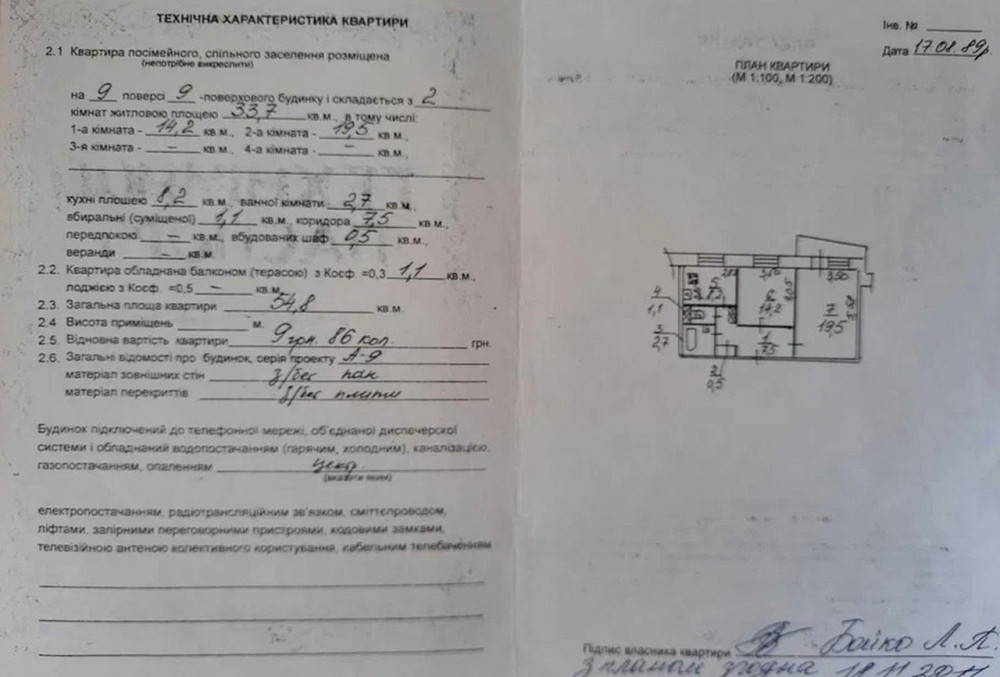 ТЕХНІЧНА ХАРАКТЕРИСТИКА КВАРТИРИ
2.1 Квартира посімейного, спільного заселення розміщена
(непотрібне викреслити)
на 9 поверсі 9 -поверхового будинку і складається з 2
кімнат житловою площею 33,7 кв.м., в тому числі:
1-а кімната - 14,2 кв.м., 2-а кімната - 19,5 кв.м.,
3-я кімната - – кв.м., 4-а кімната - – кв.м.,
кухні площею 8,2 кв.м., ванної кімнати 2,7 кв.м.,
вбиральні (суміщеної) 1,1 кв.м., коридора 7,5 кв.м.,
передпокою – кв.м., вбудованих шаф 0,5 кв.м.,
веранди – кв.м.
2.2. Квартира обладнана балконом (терасою) з Коєф. =0,3 1,1 кв.м.,
лоджією з Коєф. =0,5 – кв.м.
2.3. Загальна площа квартири 54,8 кв.м.
2.4 Висота приміщень м.
2.5. Відновна вартість квартири 9 грн. 86 коп. грн.
2.6. Загальні відомості про будинок, серія проекту А-9
матеріал зовнішніх стін з/бет пан
матеріал перекриттів з/бет плити
Будинок підключений до телефонної мережі, об'єднаної диспечерскої
системи і обладнаний водопостачанням (гарячим, холодним), каналізацією,
газопостачанням, опаленням центр.
(вказати яким)
електропостачанням, радіотрансляційним зв'язком, сміттєпроводом,
ліфтами, запірними переговорними пристроями, кодовими замками,
телевізійною антеною колективного користування, кабельним телебаченням
Інв. №
Дата 17.08.89р
ПЛАН КВАРТИРИ
(М 1:100, М 1:200)
3,50
4
1,1
6
14,2
7
19,5
3
2,7
1
7,5
2
0,5
Підпис власника квартири Бойко Л.П.
З планом згодна 18.11.2011